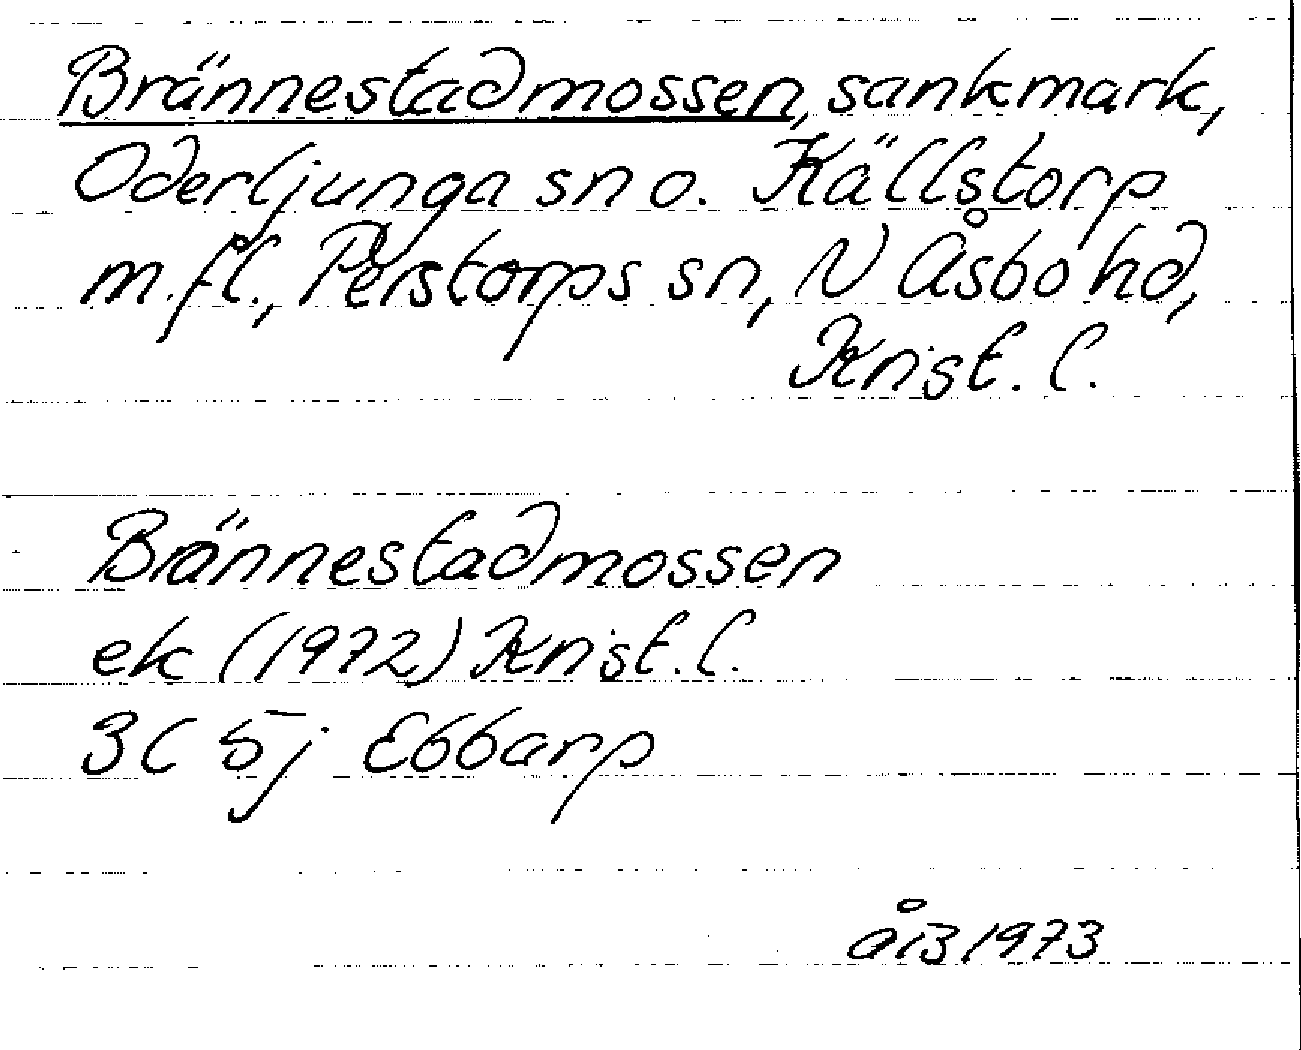 Brännestadmossen, sankmark,
Oderljunga sn o. Källstorp
m.fl., Perstorps sn, N Åsbo hd,
Krist. l.
Brännestadmossen
ek (1972) Krist. l.
3C 5j Ebbarp
åB 1973